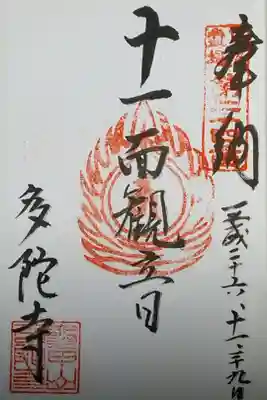 奉納
平成二十六、十一、二十九日
十一面観音
多陀寺